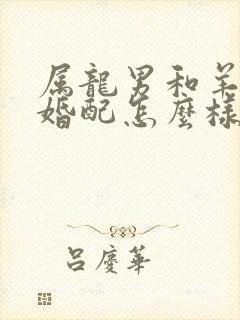 属龍男和羊
婚配怎麼樣
吕慶華